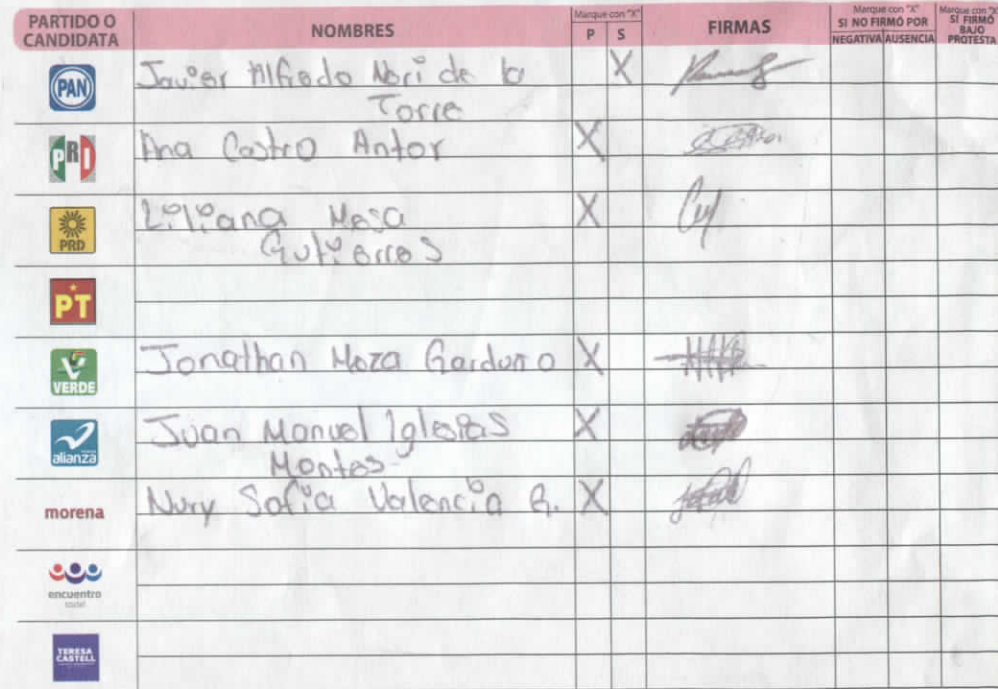 PARTIDO O CANDIDATA NOMBRES Marque con "X" P S FIRMAS Marque con "X" SI NO FIRMÓ POR NEGATIVA AUSENCIA Marque con "X" SI FIRMÓ BAJO PROTESTA
PAN Javier Alfredo Nori de la X
Torre
PRI Ana Castro Antor X
PRD Liliana Mesa X
Gutierres
PT
VERDE Jonathan Meza Garduno X
alianza Juan Manuel Iglesias X
Montes
morena Nury Sofia Valencia R. X
encuentro
social
TERESA
CASTELL